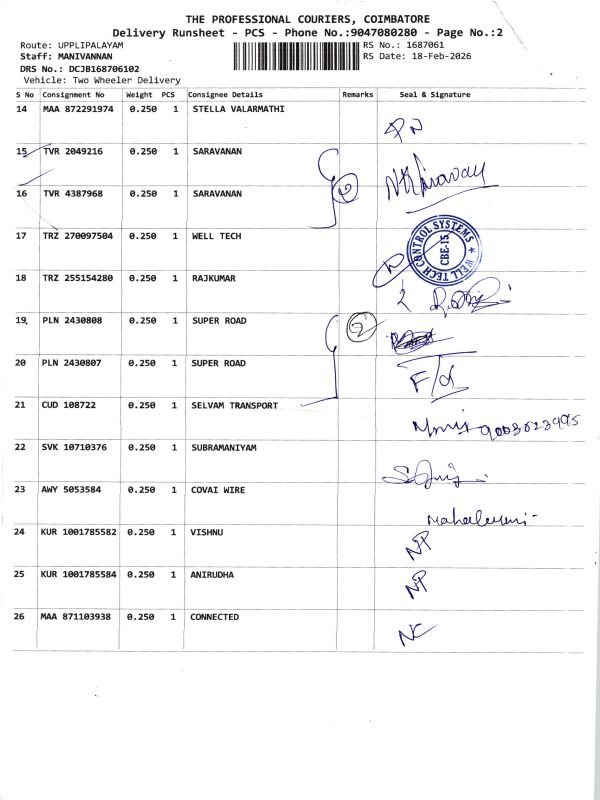 THE PROFESSIONAL COURIERS, COIMBATORE
Delivery Runsheet - PCS - Phone No.:9047080280 - Page No.:2
Route: UPPLIPALAYAM RS No.: 1687061
Staff: MANIVANNAN RS Date: 18-Feb-2026
DRS No.: DCJB168706102
Vehicle: Two Wheeler Delivery
S No Consignment No Weight PCS Consignee Details Remarks Seal & Signature
14 MAA 872291974 0.250 1 STELLA VALARMATHI
15 TVR 2049216 0.250 1 SARAVANAN
16 TVR 4387968 0.250 1 SARAVANAN
17 TRZ 270097504 0.250 1 WELL TECH
WELL TECH CONTROL SYSTEMS
CBE-15
18 TRZ 255154280 0.250 1 RAJKUMAR
19 PLN 2430808 0.250 1 SUPER ROAD
2
20 PLN 2430807 0.250 1 SUPER ROAD
21 CUD 108722 0.250 1 SELVAM TRANSPORT
22 SVK 10710376 0.250 1 SUBRAMANIYAM
23 AWY 5053584 0.250 1 COVAI WIRE
24 KUR 1001785582 0.250 1 VISHNU
NP
25 KUR 1001785584 0.250 1 ANIRUDHA
NP
26 MAA 871103938 0.250 1 CONNECTED
NC